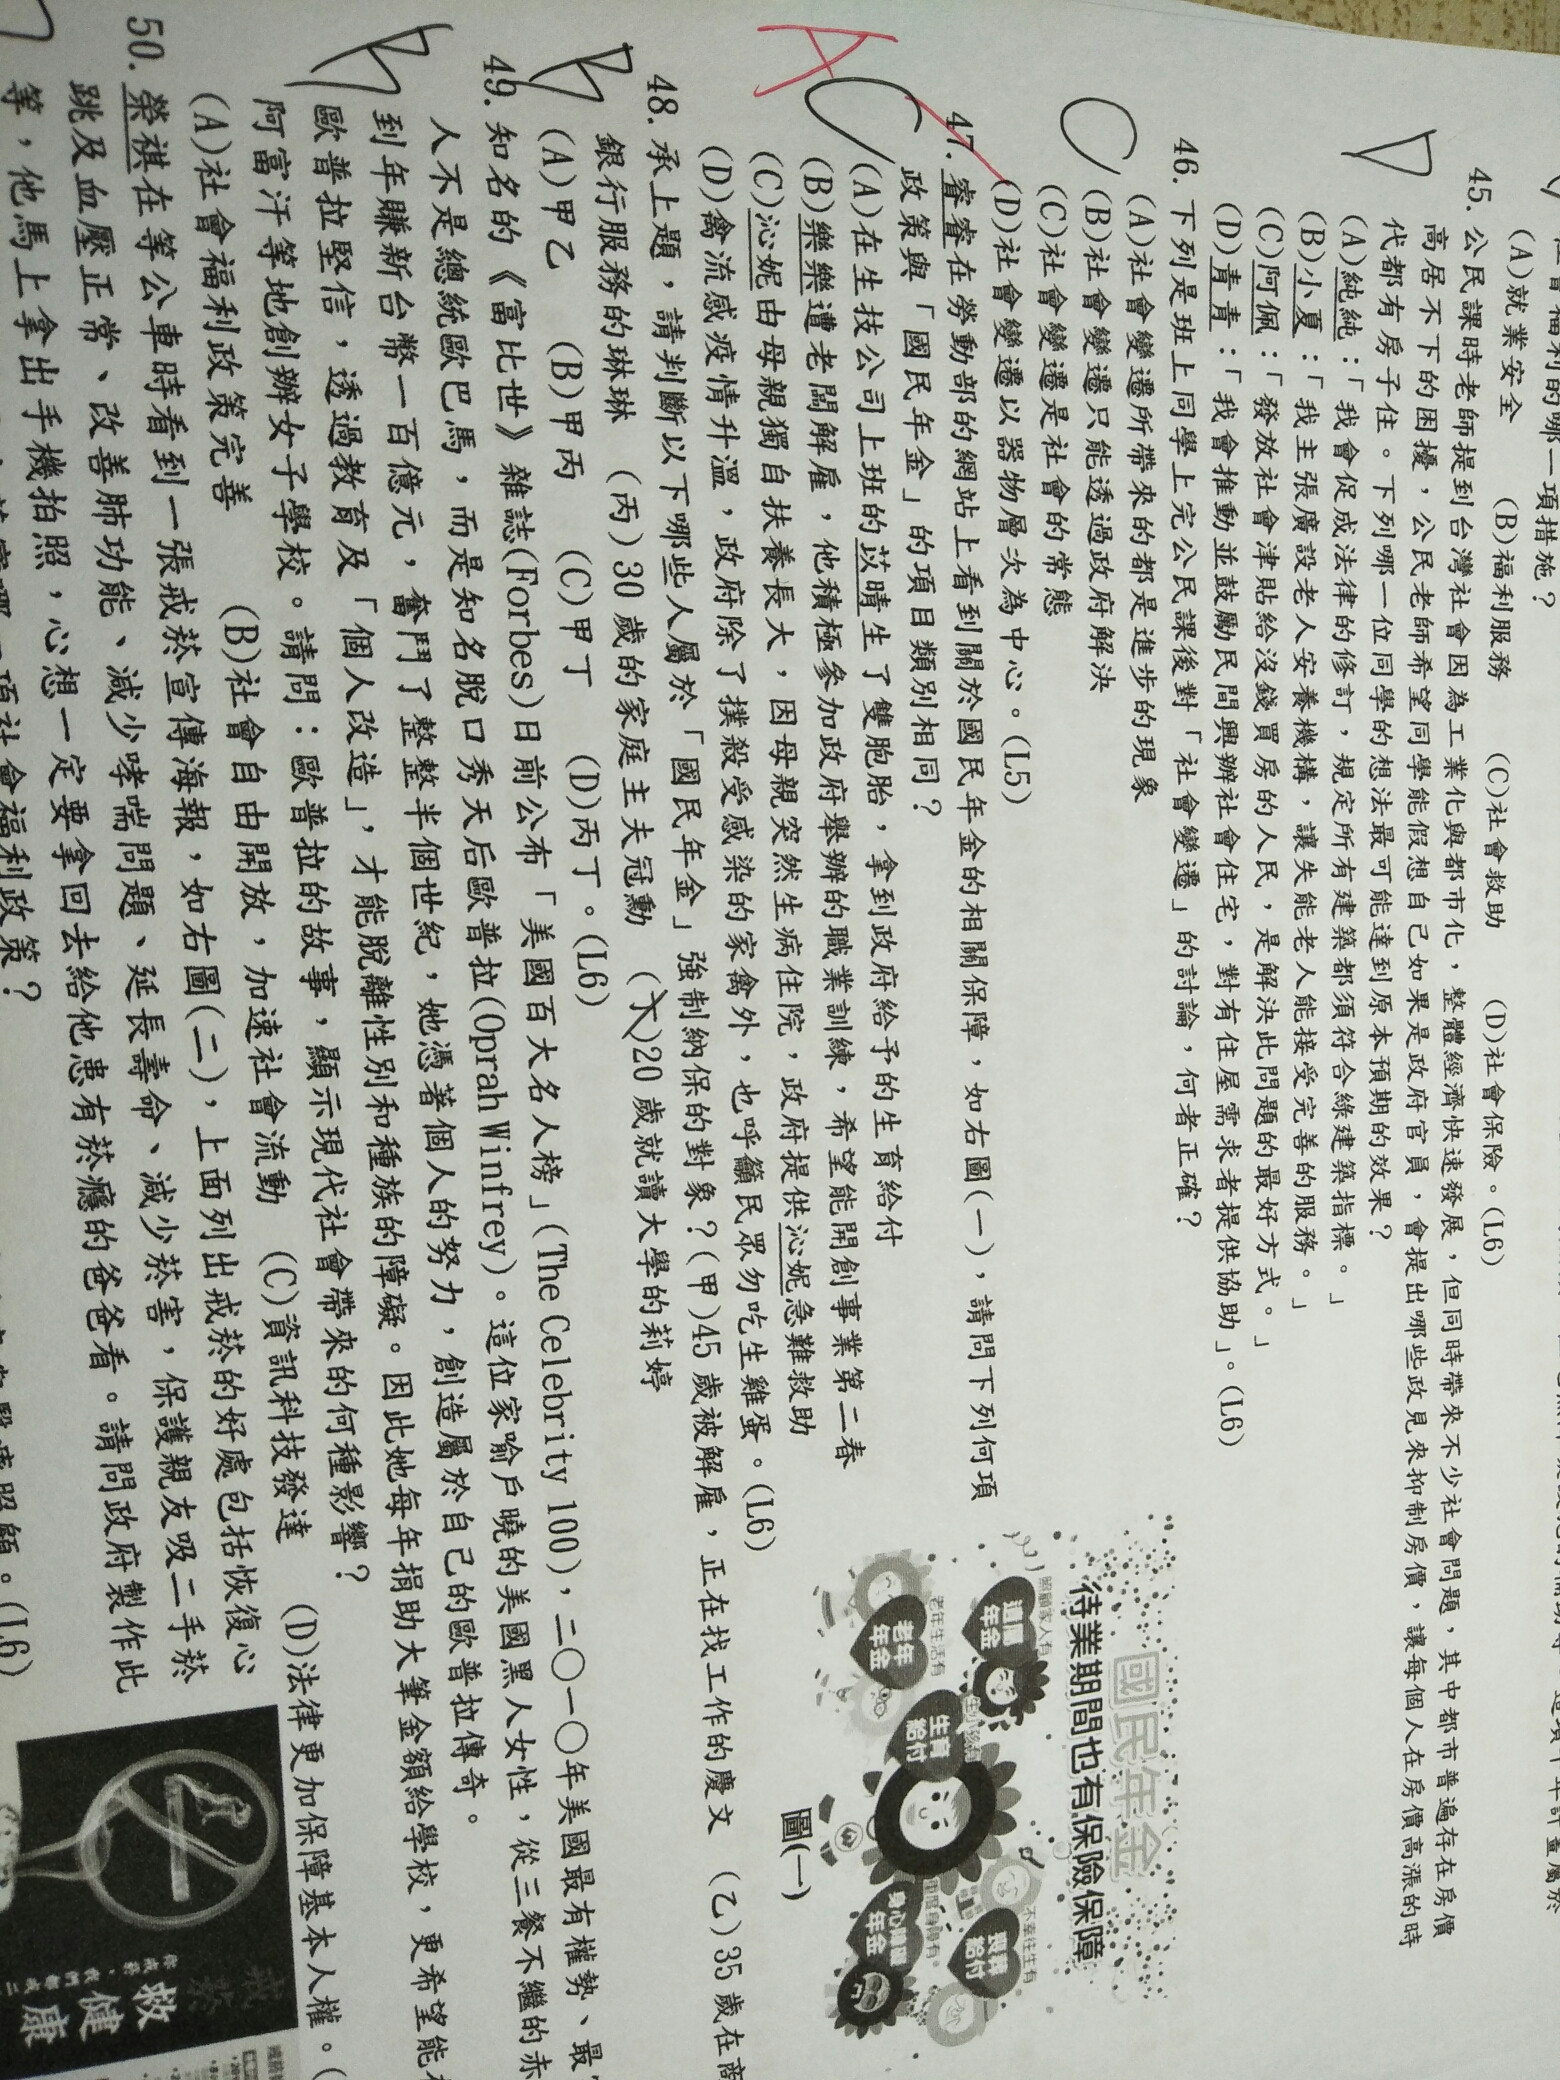 (A)就業安全 (B)福利服務 (C)社會救助 (D)社會保險。(L6)
45. 公民課時老師提到台灣社會因為工業化與都市化，整體經濟快速發展，但同時帶來不少社會問題，其中都市普遍存在房價
高居不下的困擾，公民老師希望同學能假想自己如果是政府官員，會提出哪些政見來抑制房價，讓每個人在房價高漲的時
代都有房子住。下列哪一位同學的想法最可能達到原本預期的效果？
D
(A)純純：「我會促成法律的修訂，規定所有建築都須符合綠建築指標。」
(B)小夏：「我主張廣設老人安養機構，讓失能老人能接受完善的服務。」
(C)阿佩：「發放社會津貼給沒錢買房的人民，是解決此問題的最好方式。」
(D)青青：「我會推動並鼓勵民間興辦社會住宅，對有住屋需求者提供協助」。(L6)
46. 下列是班上同學上完公民課後對「社會變遷」的討論，何者正確？
C
(A)社會變遷所帶來的都是進步的現象
(B)社會變遷只能透過政府解決
(C)社會變遷是社會的常態
(D)社會變遷以器物層次為中心。(L5)
47. 睿睿在勞動部的網站上看到關於國民年金的相關保障，如右圖(一)，請問下列何項
政策與「國民年金」的項目類別相同？
C
A
(A)在生技公司上班的苡晴生了雙胞胎，拿到政府給予的生育給付
(B)樂樂遭老闆解雇，他積極參加政府舉辦的職業訓練，希望能開創事業第二春
(C)沁妮由母親獨自扶養長大，因母親突然生病住院，政府提供沁妮急難救助
(D)禽流感疫情升溫，政府除了撲殺受感染的家禽外，也呼籲民眾勿吃生雞蛋。(L6)
國民年金
待業期間也有保險保障
照顧家人有
遺屬年金
老年生活有
老年年金
生育給付
不幸往生有
喪葬給付
身心障礙年金
圖(一)
48. 承上題，請判斷以下哪些人屬於「國民年金」強制納保的對象？(甲)45歲被解雇，正在找工作的慶文 (乙)35歲在商
銀行服務的琳琳 (丙)30歲的家庭主夫冠勳 (丁)20歲就讀大學的莉婷
B
(A)甲乙 (B)甲丙 (C)甲丁 (D)丙丁。(L6)
49. 知名的《富比世》雜誌(Forbes)日前公布「美國百大名人榜」(The Celebrity 100)，二〇一〇年美國最有權勢、最
人不是總統歐巴馬，而是知名脫口秀天后歐普拉(Oprah Winfrey)。這位家喻戶曉的美國黑人女性，從三餐不繼的赤
到年賺新台幣一百億元，奮鬥了整整半個世紀，她憑著個人的努力，創造屬於自己的歐普拉傳奇。
歐普拉堅信，透過教育及「個人改造」，才能脫離性別和種族的障礙。因此她每年捐助大筆金額給學校，更希望能
阿富汗等地創辦女子學校。請問：歐普拉的故事，顯示現代社會帶來的何種影響？
B
(A)社會福利政策完善 (B)社會自由開放，加速社會流動 (C)資訊科技發達 (D)法律更加保障基本人權。(
50. 榮祺在等公車時看到一張戒菸宣傳海報，如右圖(二)，上面列出戒菸的好處包括恢復心
跳及血壓正常、改善肺功能、減少哮喘問題、延長壽命、減少菸害，保護親友吸二手菸
等，他馬上拿出手機拍照，心想一定要拿回去給他患有菸癮的爸爸看。請問政府製作此
戒菸
救健康